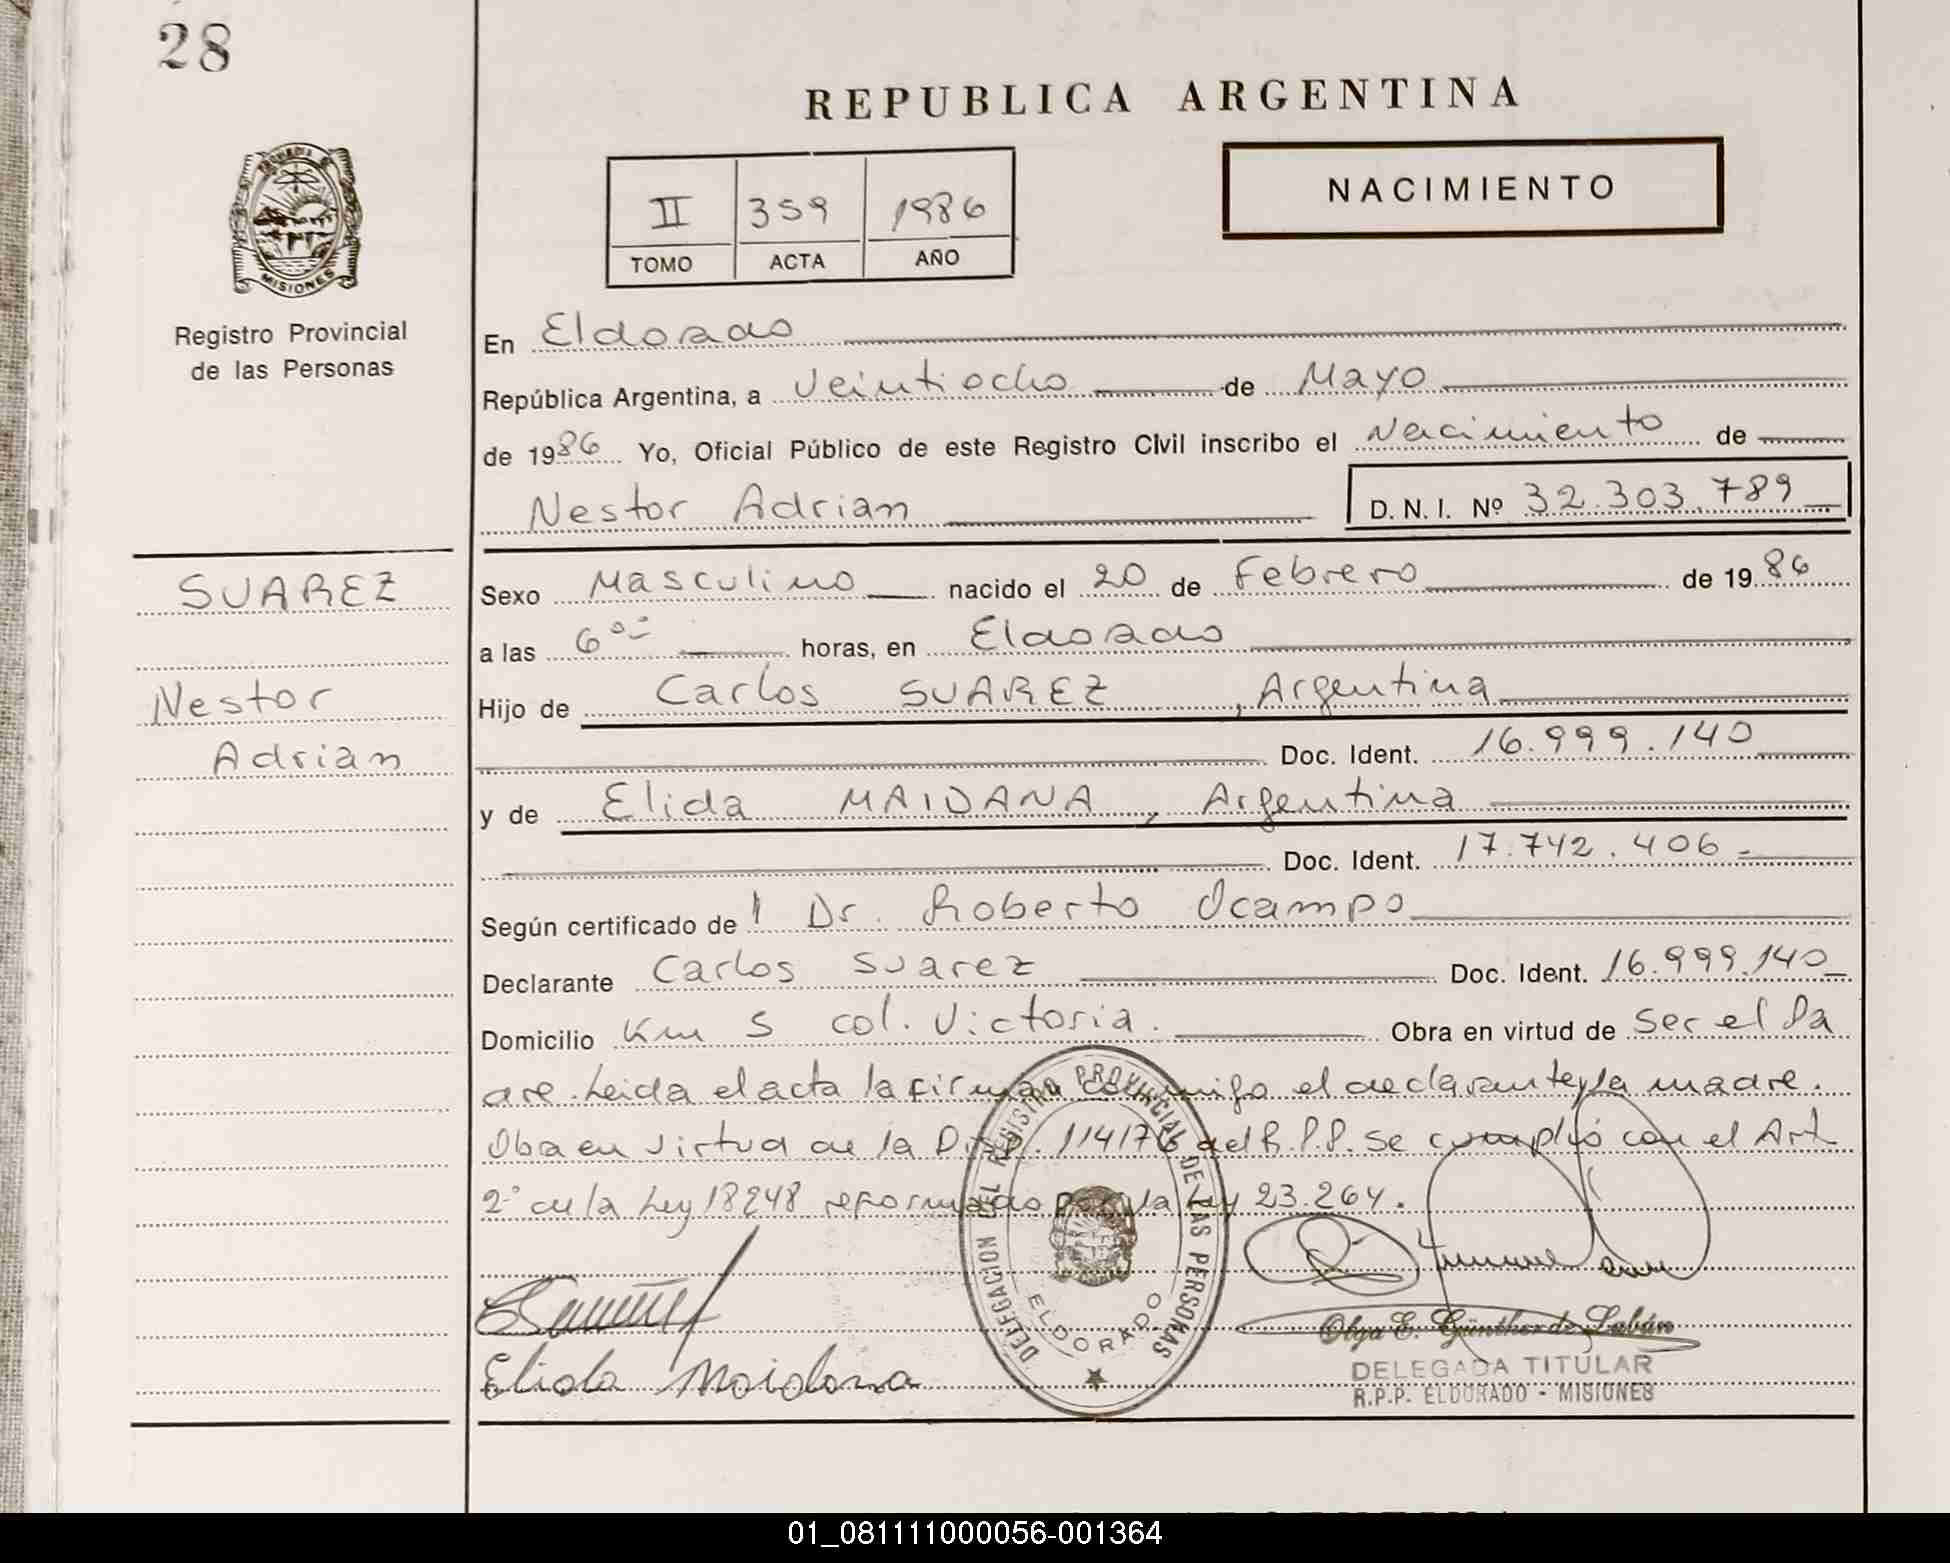 28
REPUBLICA ARGENTINA
NACIMIENTO
II 359 1986
TOMO ACTA AÑO
MISIONES
Registro Provincial
de las Personas
En Eldorado
República Argentina, a Veintiocho de Mayo
de 1986 Yo, Oficial Público de este Registro Civil inscribo el Nacimiento de
Nestor Adrian D. N. I. Nº 32.303.789
SUAREZ
Nestor
Adrian
Sexo Masculino nacido el 20 de Febrero de 1986
a las 6 horas, en Eldorado
Hijo de Carlos SUAREZ, Argentina
Doc. Ident. 16.999.140
y de Elida MAIDANA, Argentina
Doc. Ident. 17.742.406-
Según certificado de l Dr. Roberto Ocampo
Declarante Carlos Suarez Doc. Ident. 16.999.140
Domicilio Km 5 col. Victoria. Obra en virtud de ser el Pa
dre. Leida el acta la firman conmigo el declarante y la madre.
Oba en virtud de la Disp. 114176 del R.P.P. se cumplió con el Art
2º de la Ley 18248 reformado por la ley 23.264.
DELEGACION DEL REGISTRO PROVINCIAL DE LAS PERSONAS
ELDORADO
Elida Maidana
Olga E. Günther de Labán
DELEGADA TITULAR
R.P.P. ELDORADO - MISIONES
01_081111000056-001364